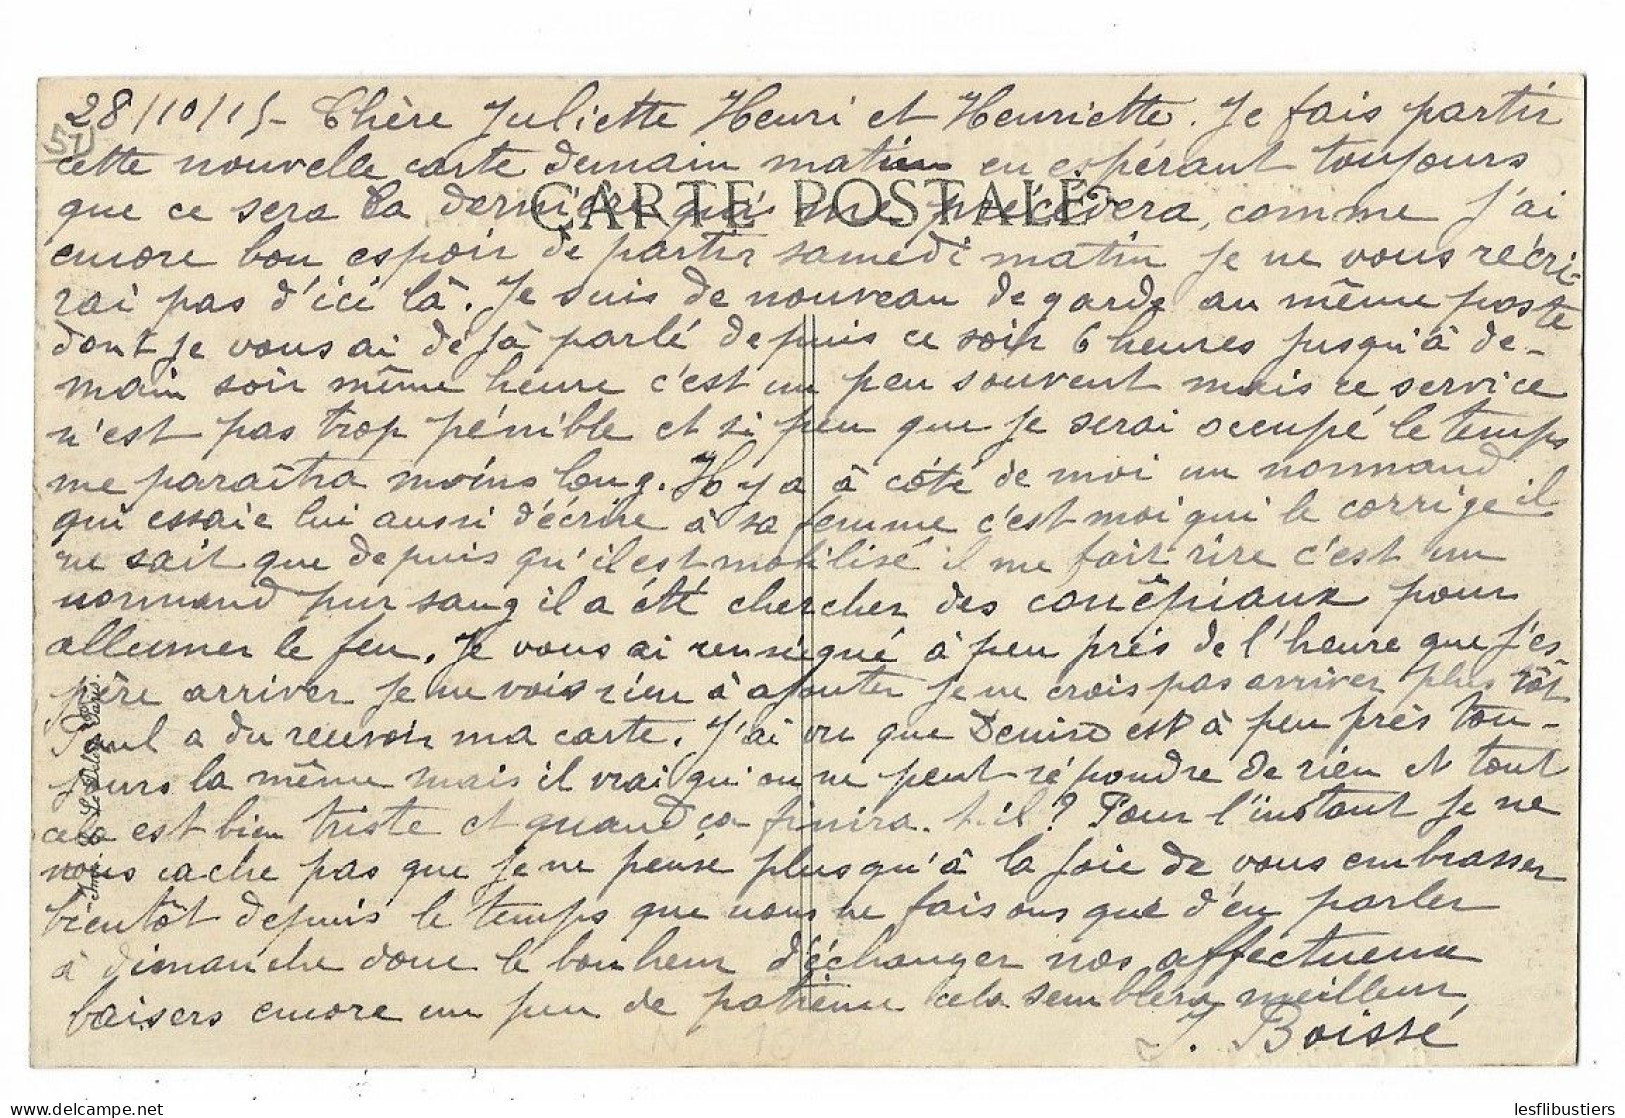 28/10/15 - Chère Juliette Henri et Henriette. Je fais partir
50
cette nouvelle carte demain matin en espérant toujours
CARTE POSTALE
que ce sera la dernière qui me précèdera, comme j'ai
encore bon espoir de partir samedi matin je ne vous récri-
rai pas d'ici là. Je suis de nouveau de garde au même poste
dont je vous ai dejà parlé depuis ce soir 6 heures jusqu'à de-
main soir même heure c'est un peu souvent mais ce service
n'est pas trop pénible et si peu que je serai occupé le temps
me paraîtra moins long. Il y a à côté de moi un normand
qui essaie lui aussi d'écrire à sa femme c'est moi qui le corrige il
ne sait que depuis qu'il est mobilisé il me fait rire c'est un
normand pur sang il a été chercher des copiaux pour
allumer le feu. Je vous ai renseigné à peu près de l'heure que j'es-
père arriver je ne vois rien à ajouter je ne crois pas arriver plus tôt
Paul a du recevoir ma carte. J'ai vu que Denise est à peu près tou-
jours la même mais il vrai qu'on ne peut répondre de rien et tout
cela est bien triste et quand ça finira-t-il? Pour l'instant je ne
vous cache pas que je ne pense plus qu'à la joie de vous embrasser
bientôt depuis le temps que nous ne faisons que d'en parler
à dimanche donc le bonheur d'échanger nos affectueux
baisers encore un peu de patience cela semblera meilleur
J. Boissé
Imp. Le Deley, Paris.
lesflibustiers